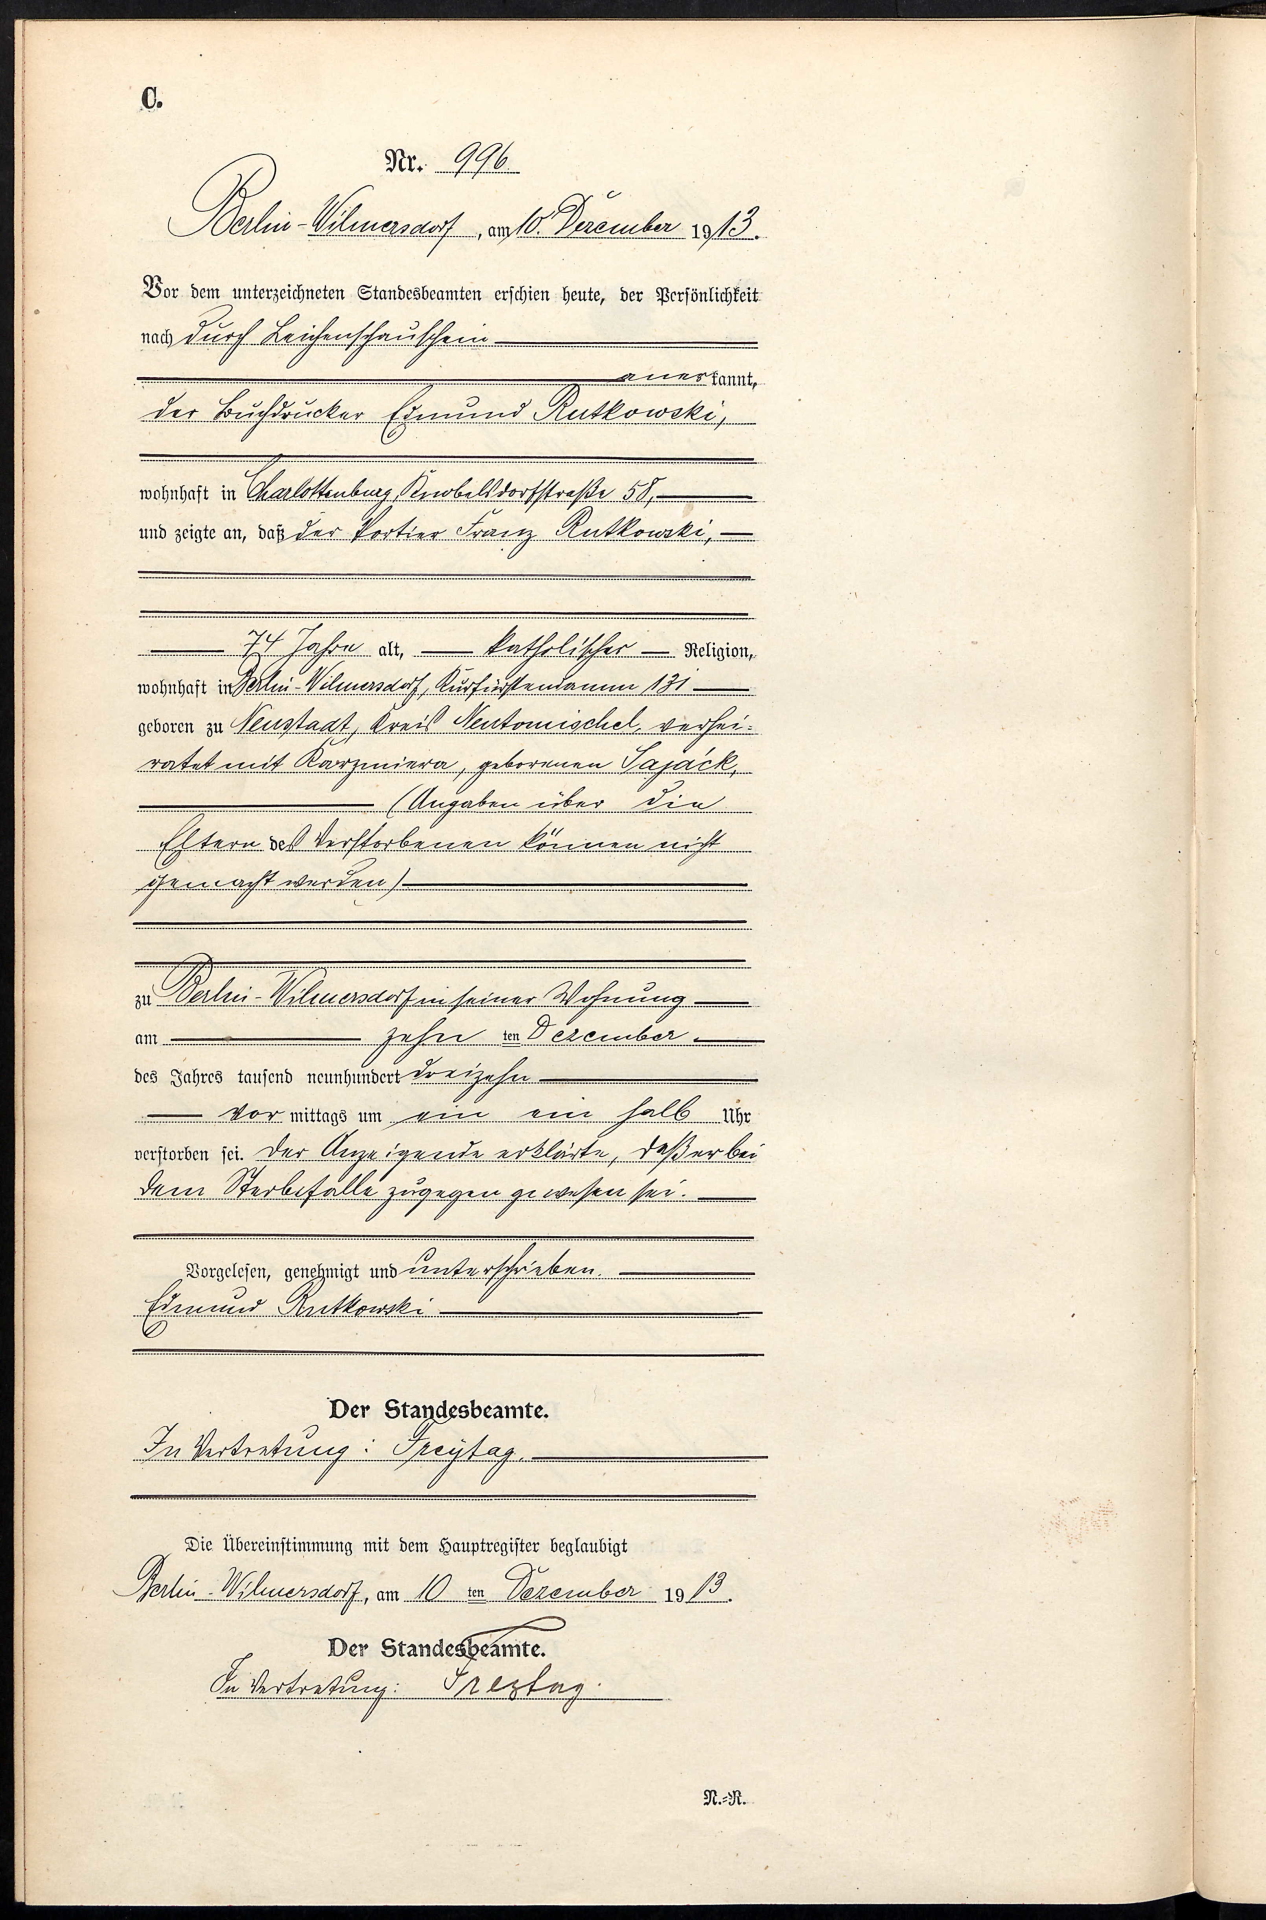 C.
Nr. 996
Berlin-Wilmersdorf, am 10. Dezember 1913.
Vor dem unterzeichneten Standesbeamten erschien heute, der Persönlichkeit
nach durch Leichenschauschein
anerkannt,
der Buchdrucker Edmund Rutkowski,
wohnhaft in Charlottenburg, Knobelsdorfstraße 58,
und zeigte an, daß der Portier Franz Rutkowski,
74 Jahre alt, katholischer Religion,
wohnhaft in Berlin-Wilmersdorf, Kurfürstendamm 131
geboren zu Neustadt, Kreis Neutomischel, verhei-
ratet mit Kazmiera, geborenen Sajáck,
(Angaben über die
Eltern des Verstorbenen können nicht
gemacht werden)
zu Berlin-Wilmersdorf in seiner Wohnung
am zehn ten Dezember
des Jahres tausend neunhundert dreizehn
vor mittags um ein ein halb Uhr
verstorben sei. Der Anzeigende erklärte, daß er bei
dem Sterbefalle zugegen gewesen sei.
Vorgelesen, genehmigt und unterschrieben.
Edmund Rutkowski
Der Standesbeamte.
In Vertretung: Freytag.
Die Übereinstimmung mit dem Hauptregister beglaubigt
Berlin-Wilmersdorf, am 10 ten Dezember 1913.
Der Standesbeamte.
In Vertretung: Freytag.
N.-R.